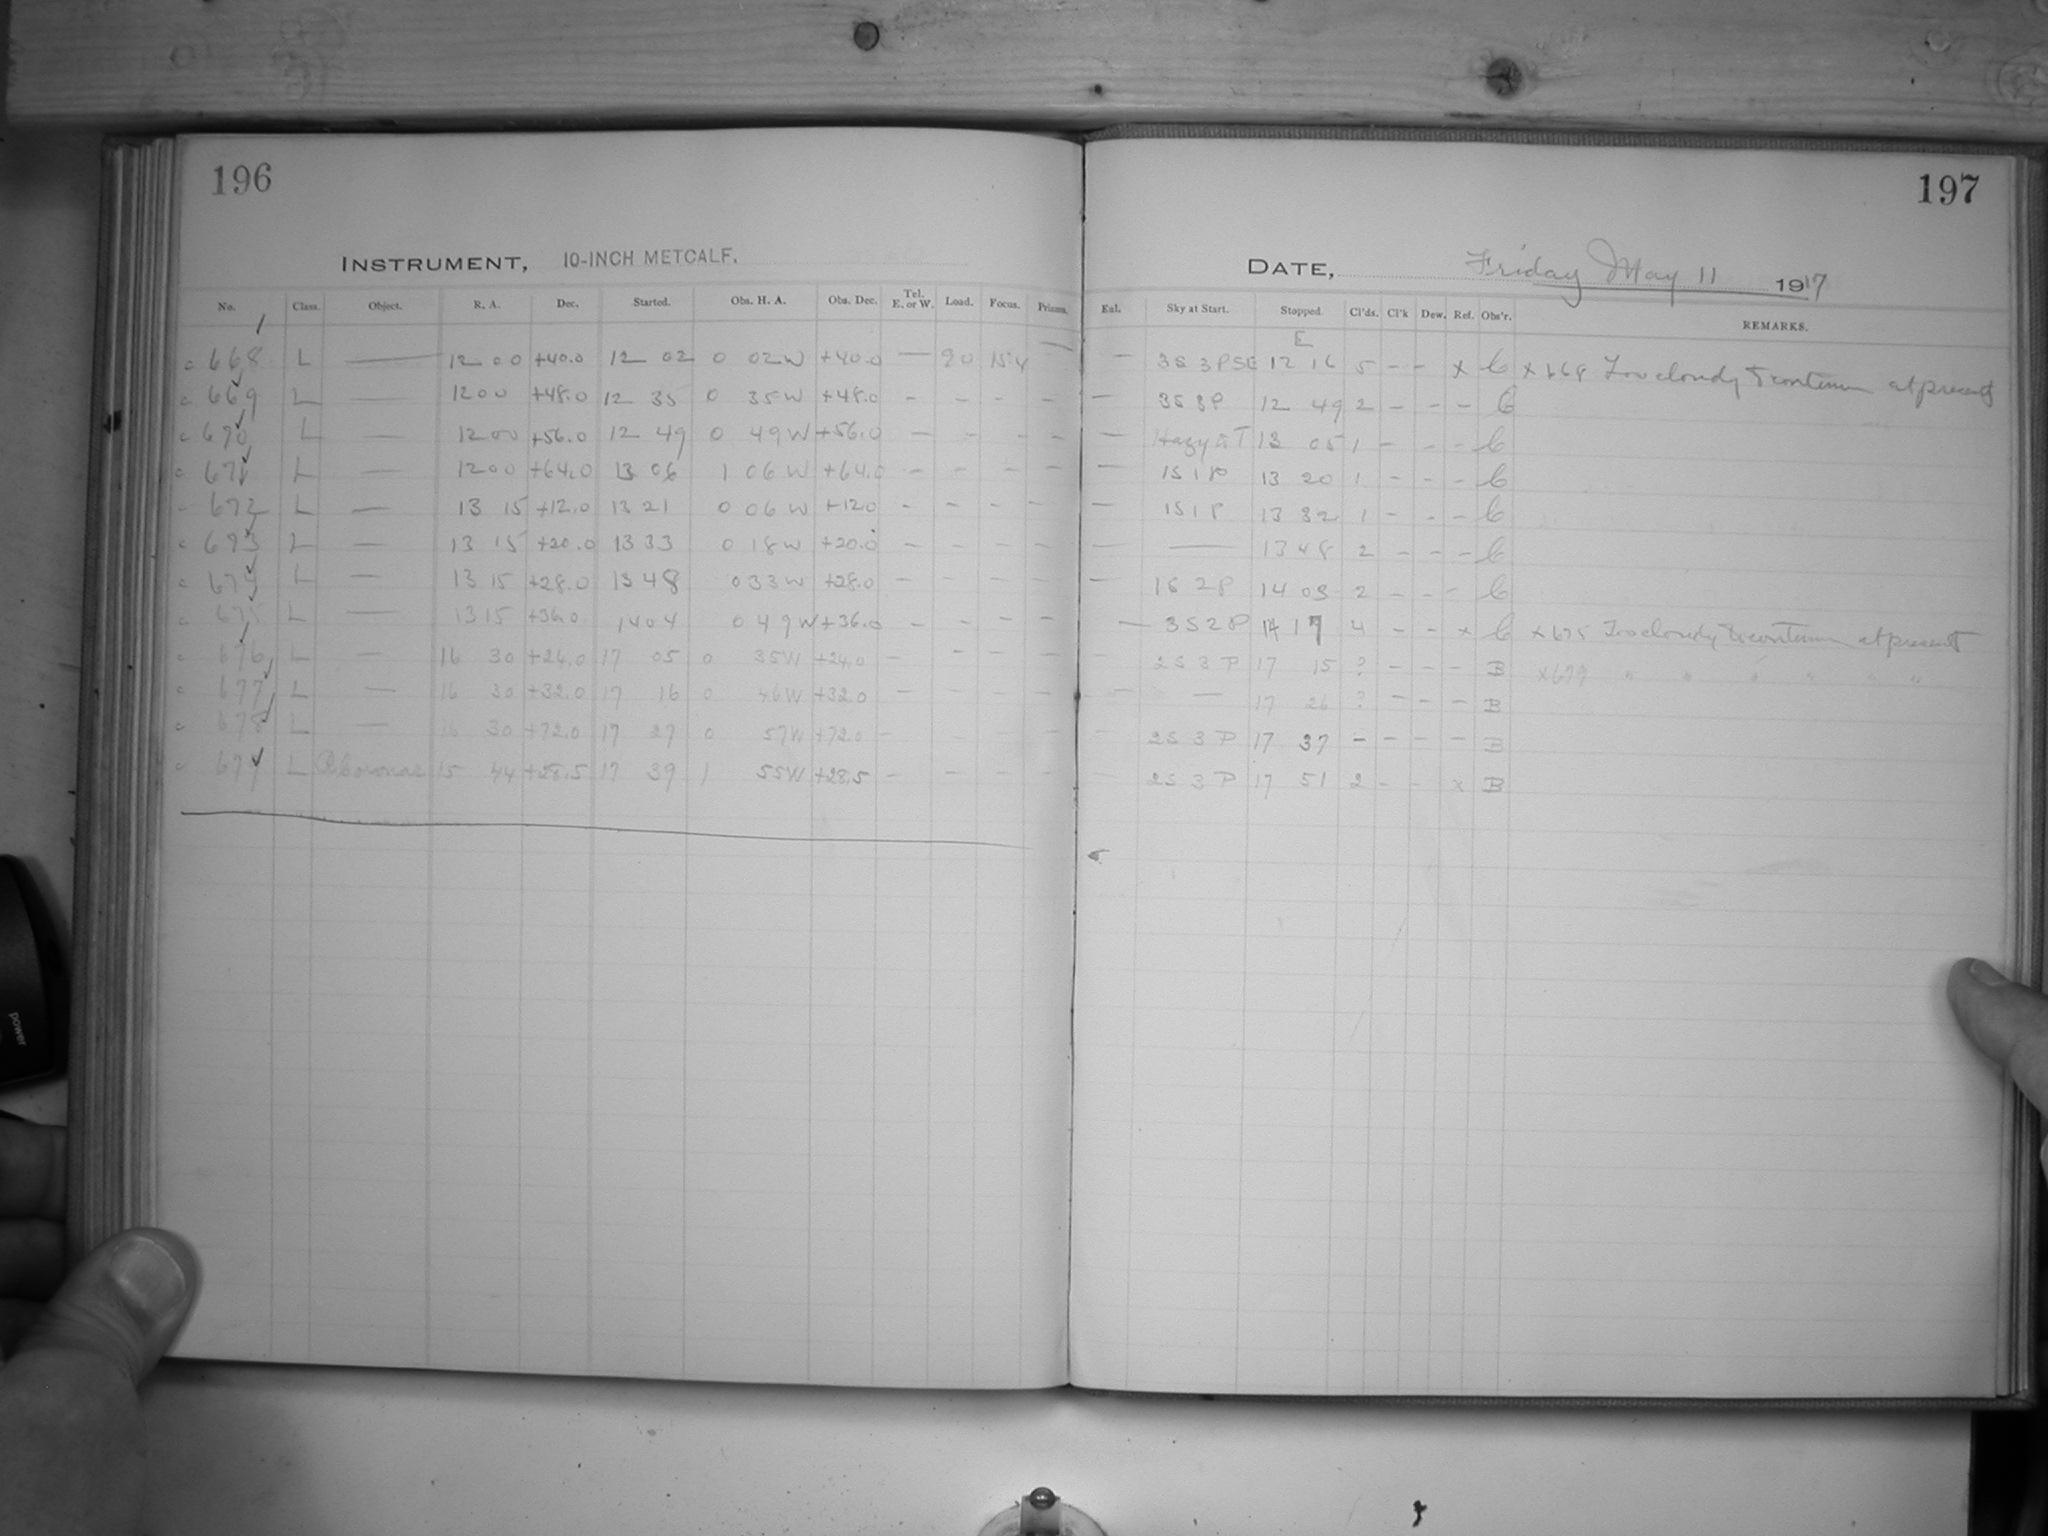 196
197
INSTRUMENT, 10-INCH METCALF.
DATE, Friday May 11 1917
No. Class. Object. R. A. Dec. Started. Obs. H. A. Obs. Dec. Tel. E. or W. Load. Focus. Prisms. Eul. Sky at Start. Stopped. Cl'ds. Cl'k Dew. Ref. Obs'r. REMARKS.
E
c 668 L — 12 00 +40.0 12 02 0 02W +40.0 — 20 15.4 — — 3S 3P SE 12 16 5 – – x C x 668 Too cloudy to continue at present
c 669 L — 12 00 +48.0 12 35 0 35W +48.0 – – – – — 3S 3P 12 49 2 – – – C
c 670 L — 12 00 +56.0 12 49 0 49W +56.0 – – – – — Hazy 13 05 1 – – – C
c 671 L — 12 00 +64.0 13 06 1 06W +64.0 – – – – — 1S 1P 13 20 1 – – – C
672 L — 13 15 +12.0 13 21 0 06W +12.0 – – – – — 1S 1P 13 32 1 – – – C
c 673 L — 13 15 +20.0 13 33 0 18W +20.0 – – – – — — 13 48 2 – – – C
c 674 L — 13 15 +28.0 13 48 0 33W +28.0 – – – – — 1S 2P 14 03 2 – – – C
675 L — 13 15 +36.0 14 04 0 49W +36.0 – – – – — 3S 2P 14 17 4 – – x C x 675 Too cloudy to continue at present
c 676 L — 16 30 +24.0 17 05 0 35W +24.0 – – – – — 2S 3P 17 15 ? – – – B x679 " " " " " "
c 677 L — 16 30 +32.0 17 16 0 46W +32.0 – – – – — — 17 26 ? – – – B
c 678 L — 16 30 +72.0 17 27 0 57W +72.0 – – – – — 2S 3P 17 37 – – – – B
679 L R Coronae 15 44 +28.5 17 39 1 55W +28.5 – – – – — 2S 3P 17 51 2 – – x B
power